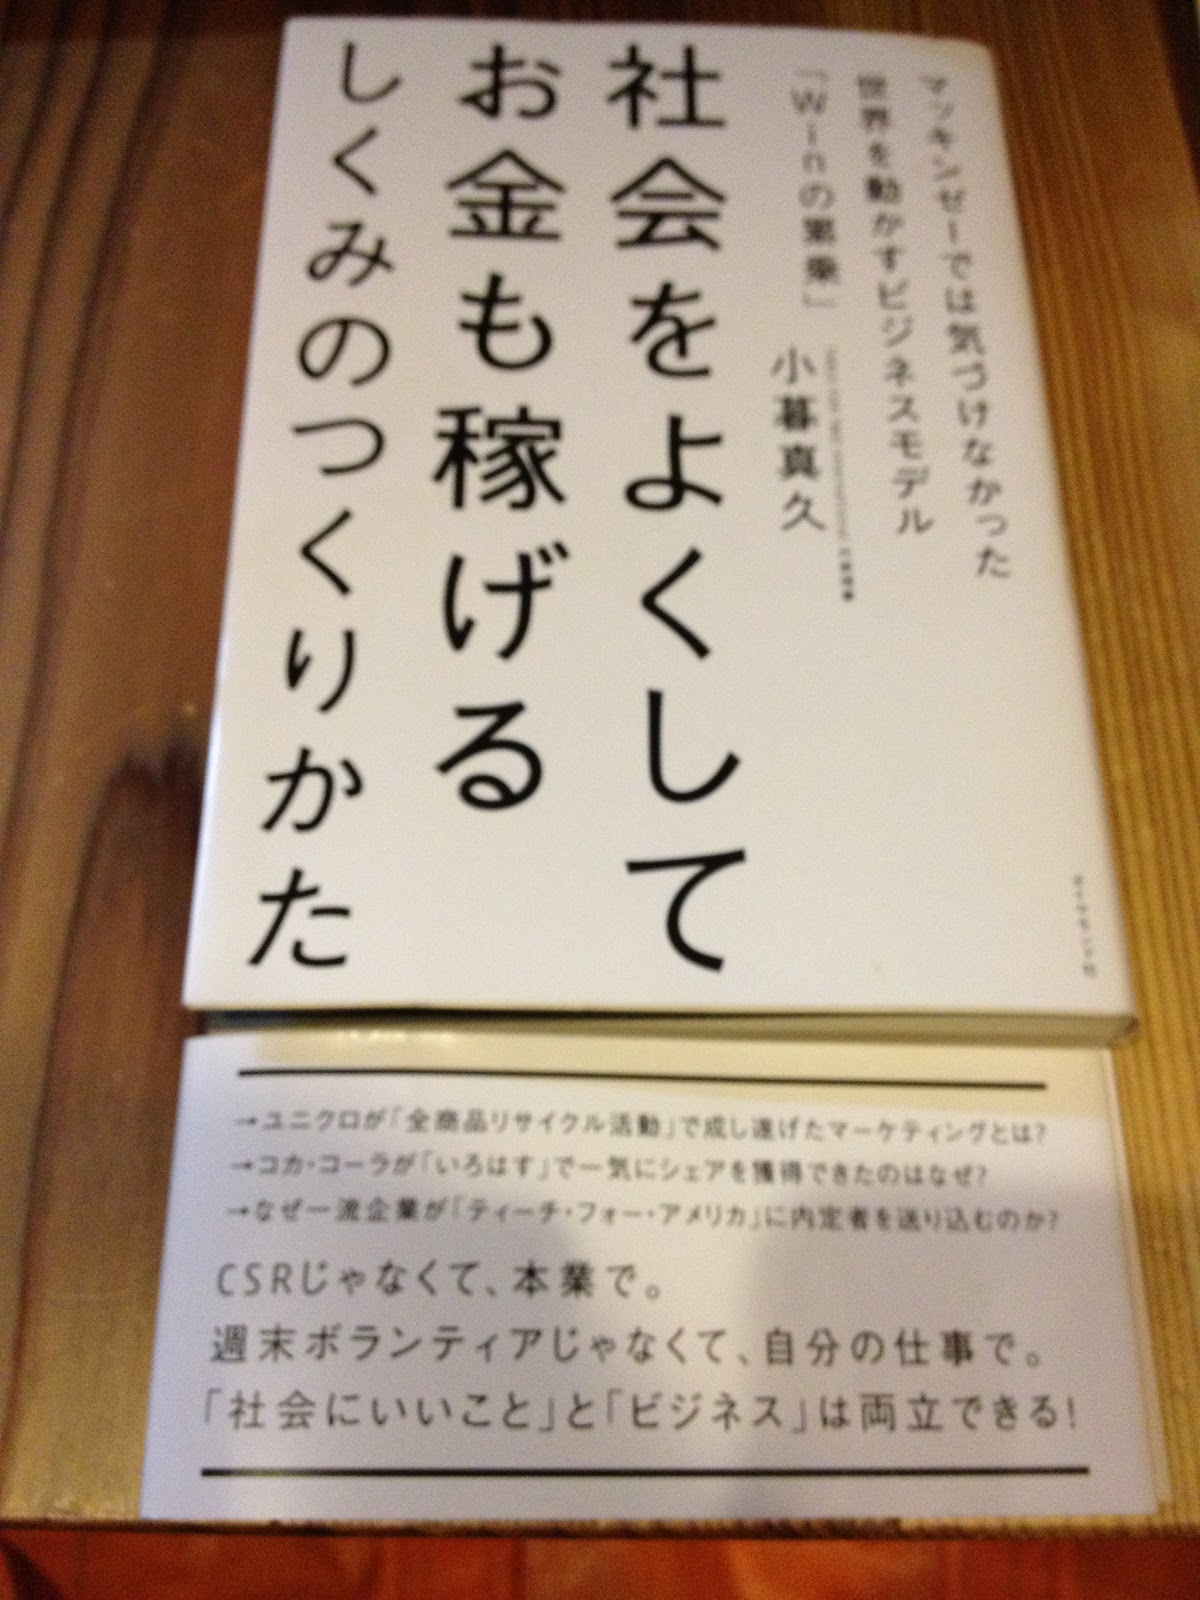 マッキンゼーでは気づけなかった
世界を動かすビジネスモデル
「Winの累乗」
小暮真久
社会をよくして
お金も稼げる
しくみのつくりかた
ダイヤモンド社
→ユニクロが「全商品リサイクル活動」で成し遂げたマーケティングとは?
→コカ・コーラが「いろはす」で一気にシェアを獲得できたのはなぜ?
→なぜ一流企業が「ティーチ・フォー・アメリカ」に内定者を送り込むのか?
CSRじゃなくて、本業で。
週末ボランティアじゃなくて、自分の仕事で。
「社会にいいこと」と「ビジネス」は両立できる!